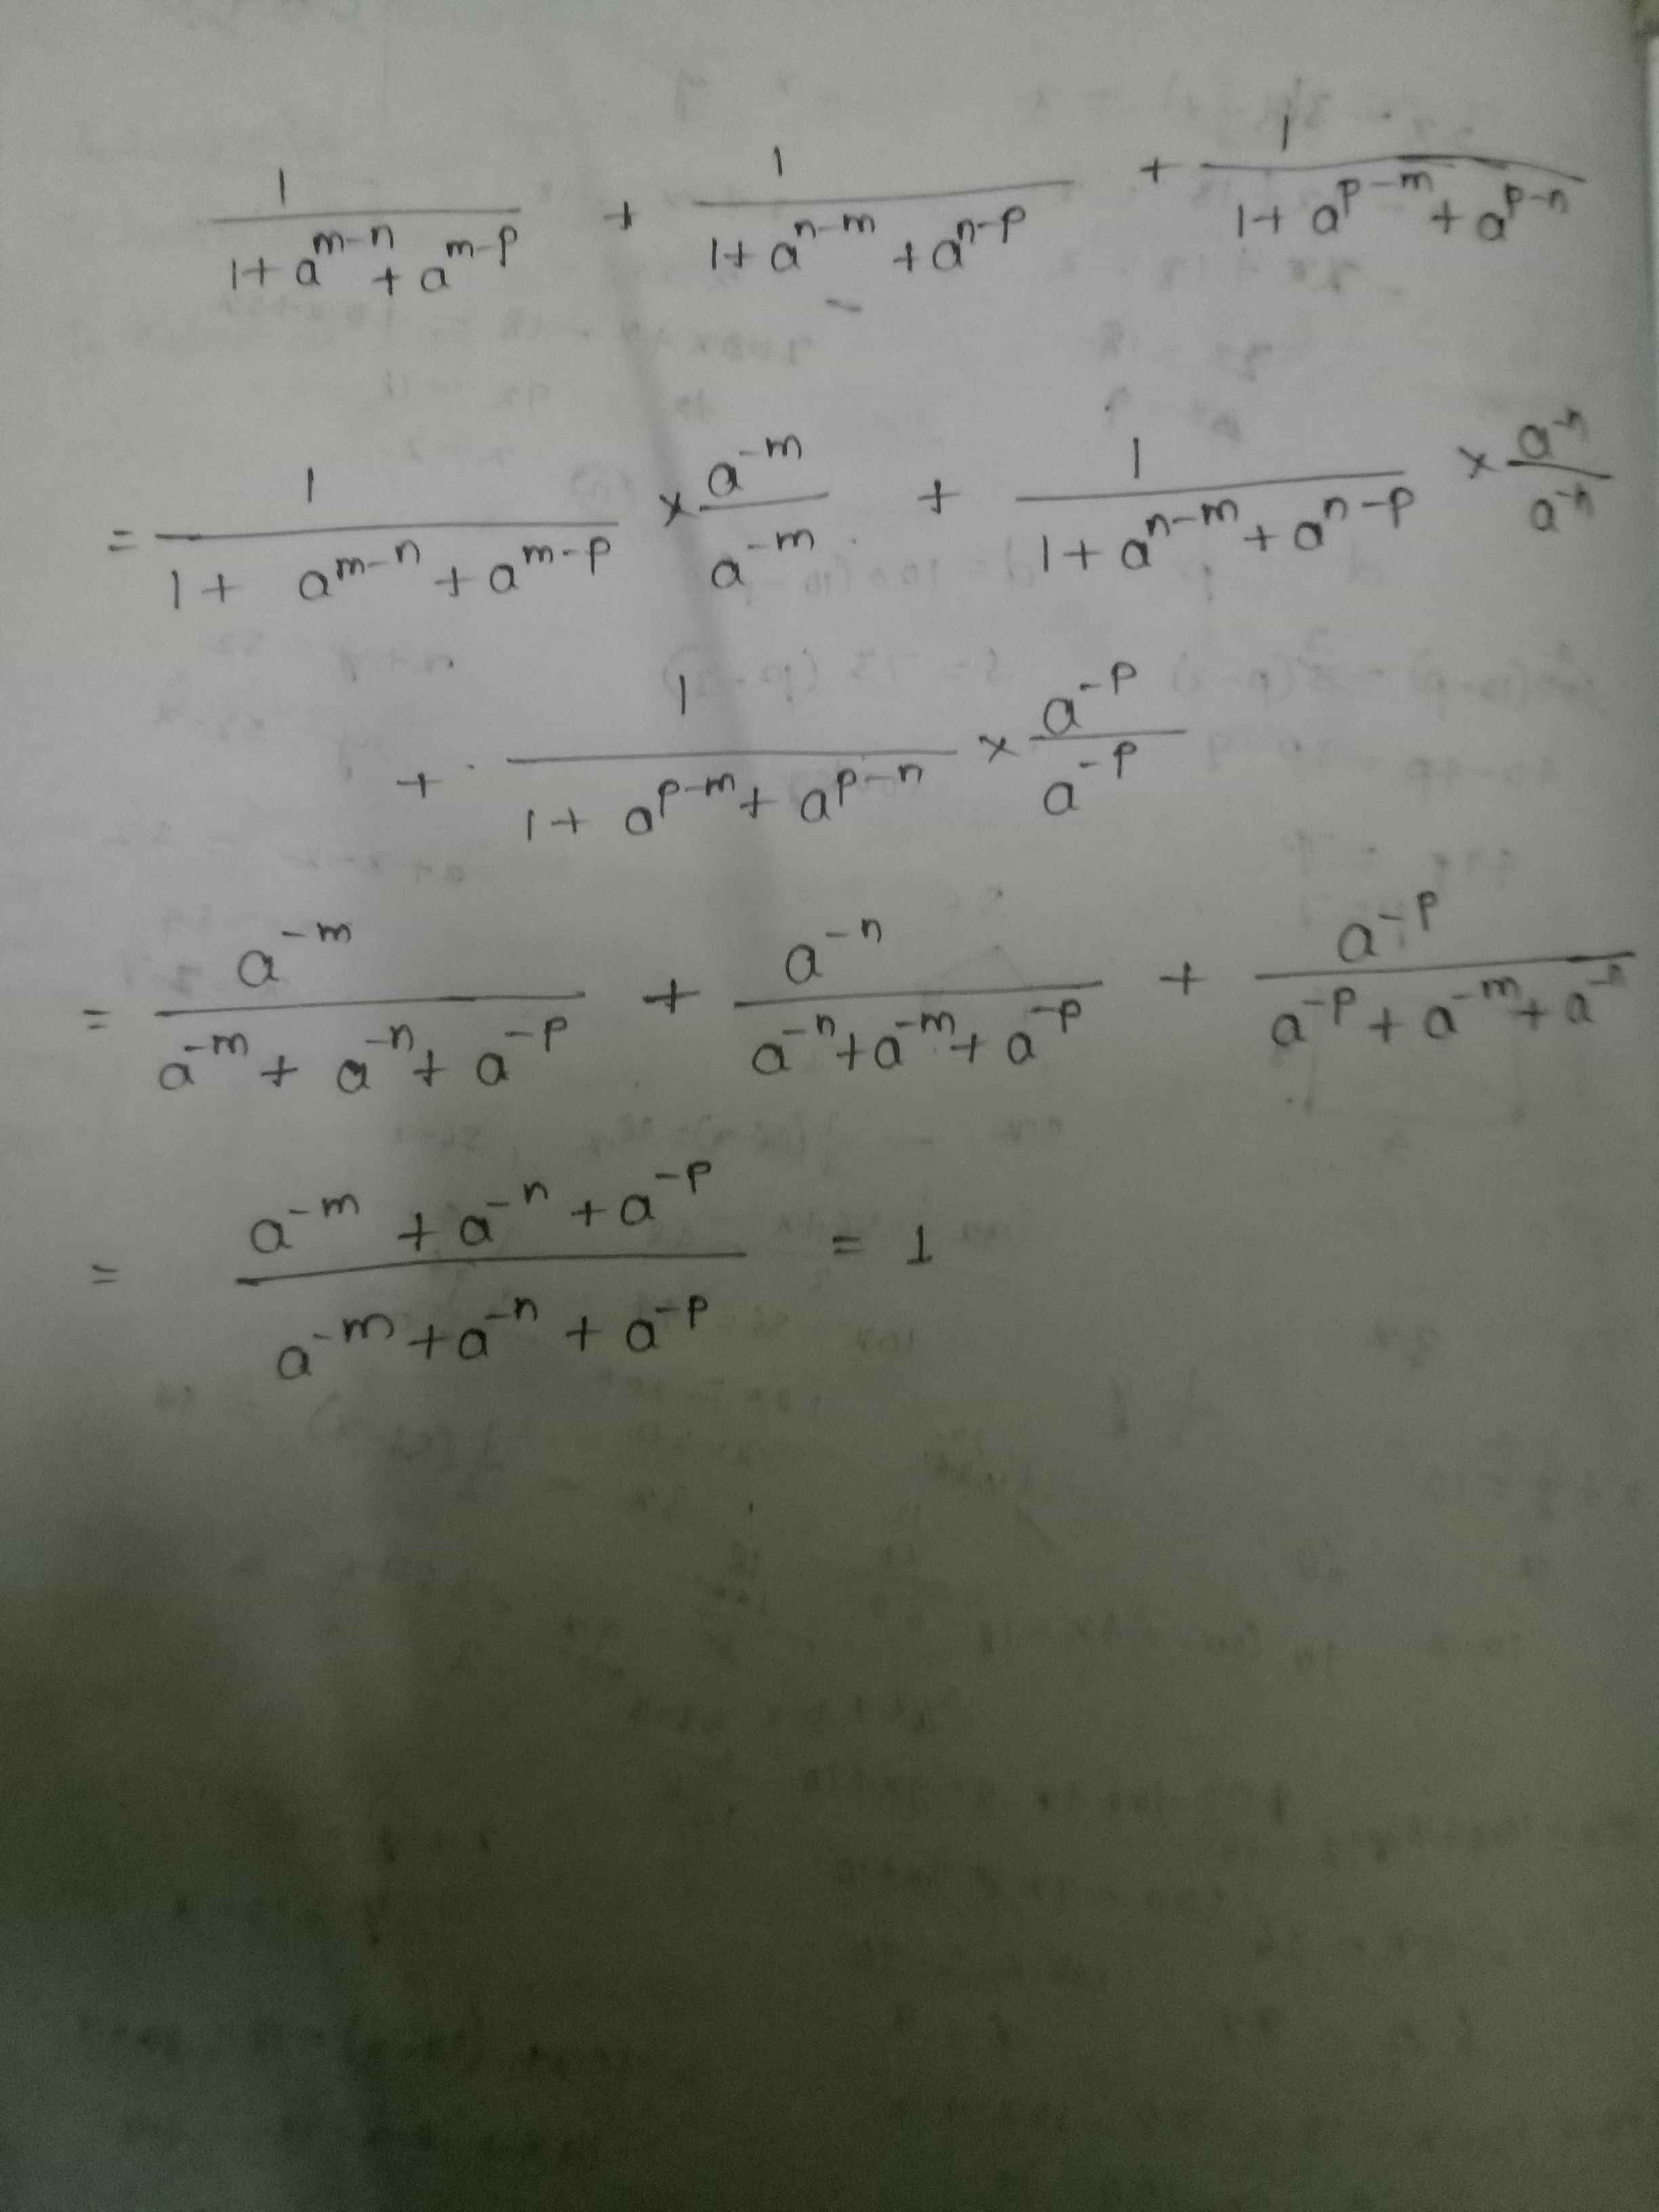 1/(1+a^{m-n}+a^{m-p}) + 1/(1+a^{n-m}+a^{n-p}) + 1/(1+a^{p-m}+a^{p-n})
= 1/(1+a^{m-n}+a^{m-p}) × a^{-m}/a^{-m} + 1/(1+a^{n-m}+a^{n-p}) × a^{-n}/a^{-n}
+ 1/(1+a^{p-m}+a^{p-n}) × a^{-p}/a^{-p}
= a^{-m}/(a^{-m}+a^{-n}+a^{-p}) + a^{-n}/(a^{-n}+a^{-m}+a^{-p}) + a^{-p}/(a^{-p}+a^{-m}+a^{-n})
= (a^{-m}+a^{-n}+a^{-p})/(a^{-m}+a^{-n}+a^{-p}) = 1